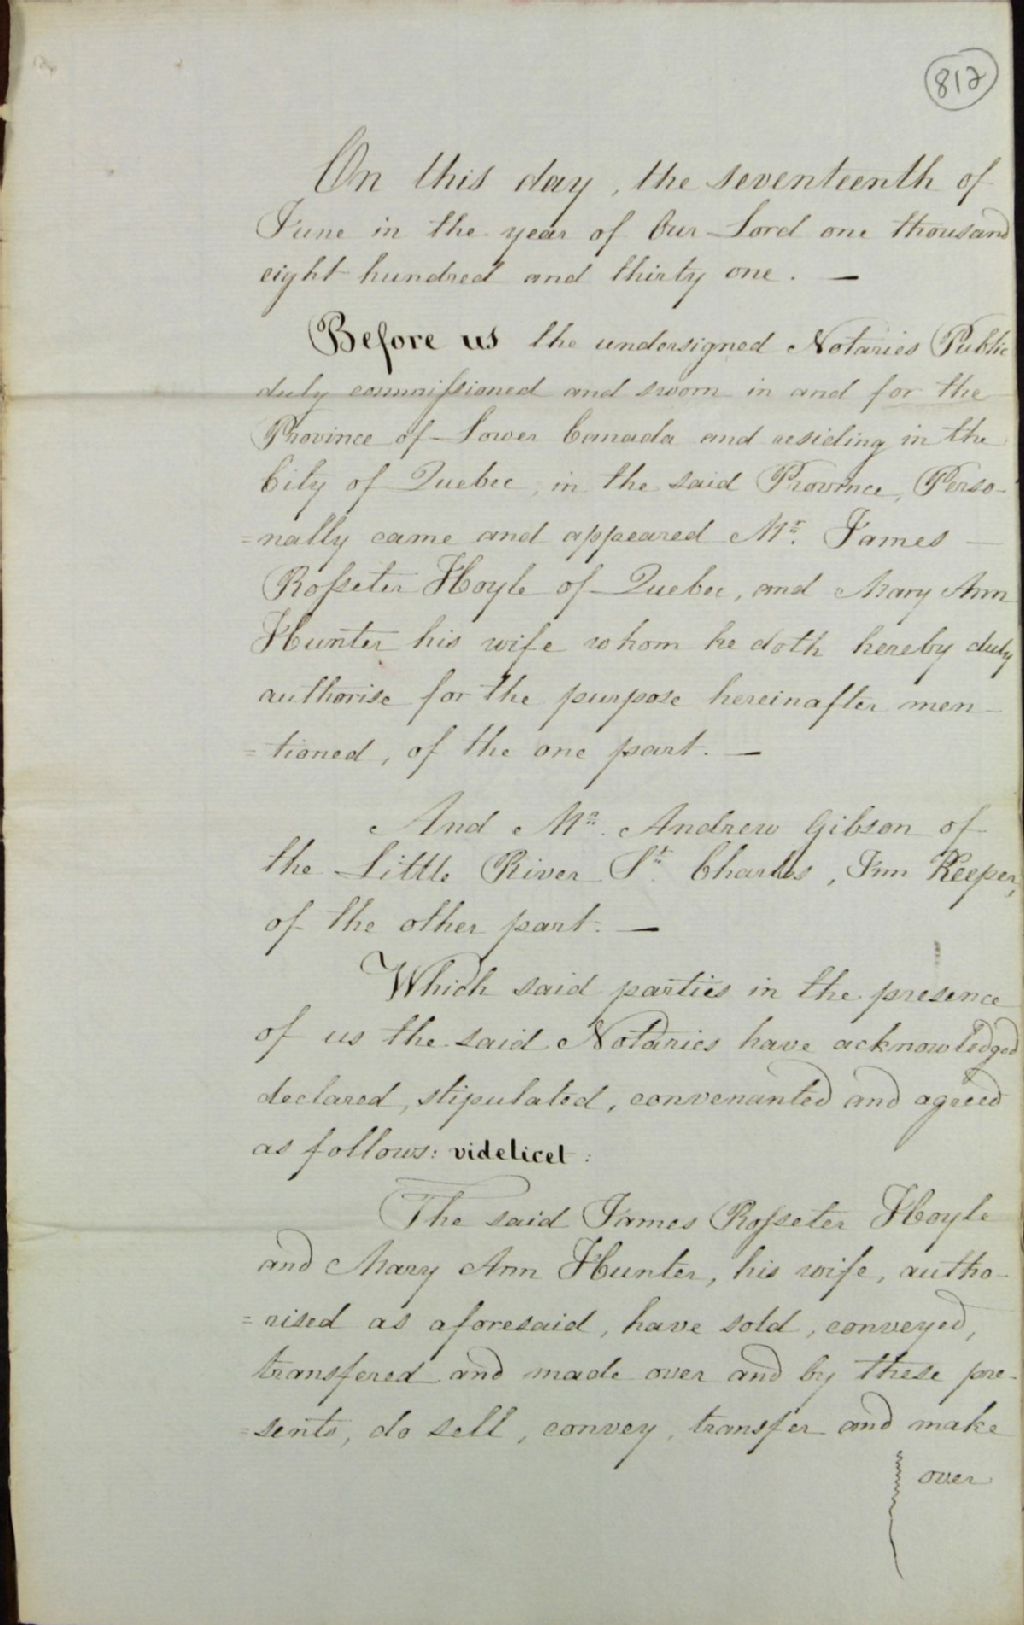 812
On this day, the seventeenth of
June in the year of Our Lord one thousand
eight hundred and thirty one. —
Before us the undersigned Notaries Public
duly commissioned and sworn in and for the
Province of Lower Canada and residing in the
City of Quebec, in the said Province, Perso-
=nally came and appeared Mr. James —
Rosseter Hoyle of Quebec, and Mary Ann
Hunter his wife whom he doth hereby duly
authorise for the purpose hereinafter men-
=tioned, of the one part. —
And Mr. Andrew Gibson of
the Little River St. Charles, Inn Keeper,
of the other part. —
Which said parties in the presence
of us the said Notaries have acknowledged
declared, stipulated, convenanted and agreed
as follows: videlicet:
The said James Rosseter Hoyle
and Mary Ann Hunter, his wife, autho-
=rised as aforesaid, have sold, conveyed,
transfered and made over and by these pre-
=sents, do sell, convey, transfer and make
over